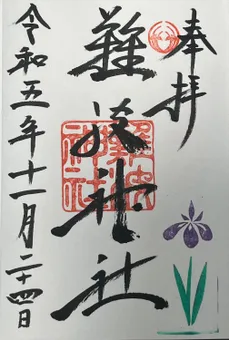 奉拝
難波神社
難波
神社
令和五年十一月二十四日